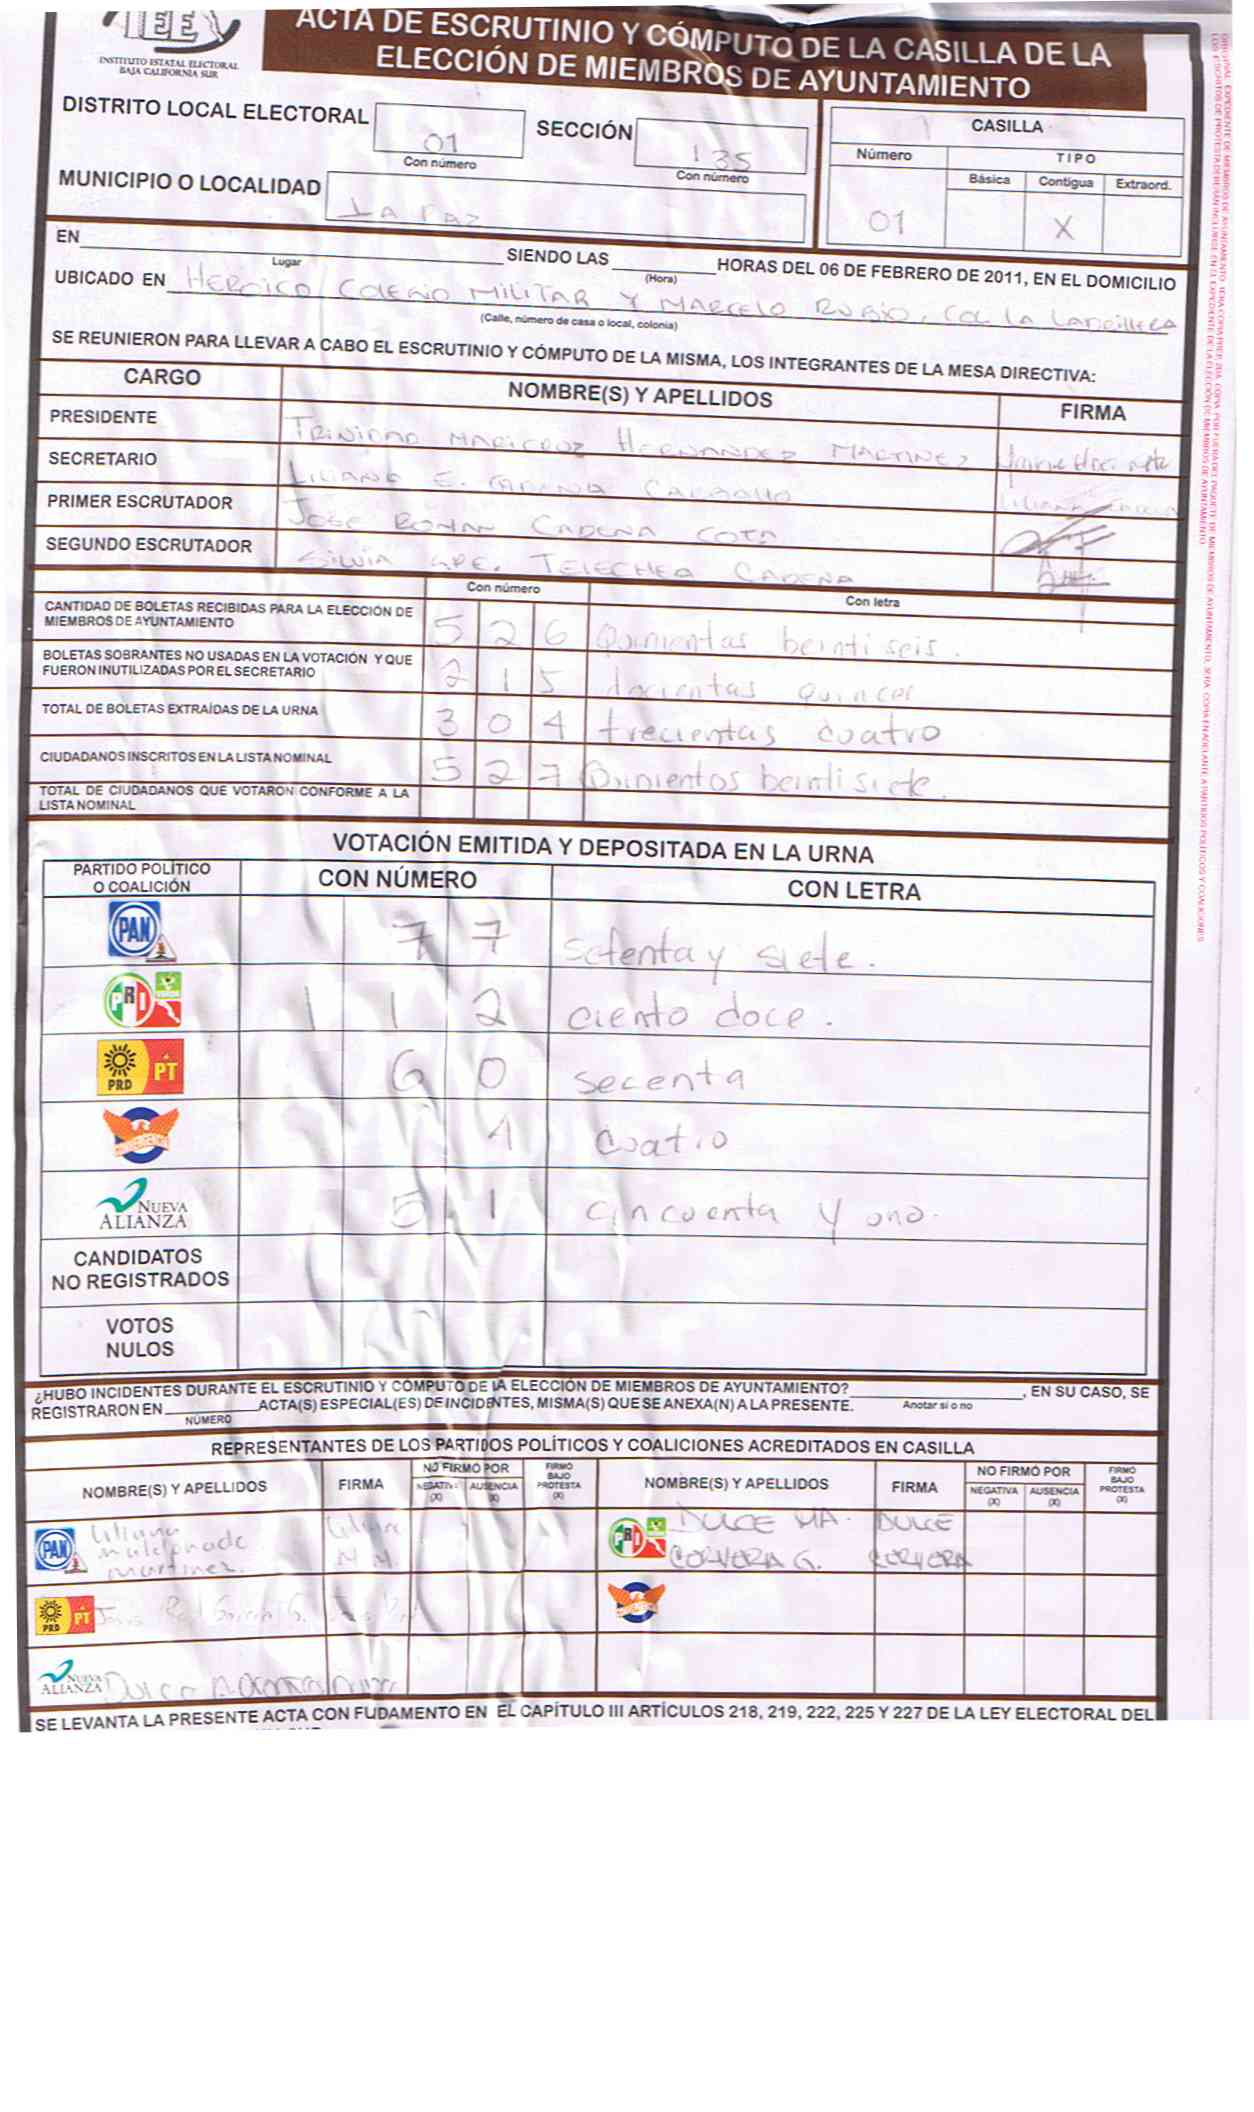 IEE
INSTITUTO ESTATAL ELECTORAL
BAJA CALIFORNIA SUR
ACTA DE ESCRUTINIO Y CÓMPUTO DE LA CASILLA DE LA
ELECCIÓN DE MIEMBROS DE AYUNTAMIENTO
DISTRITO LOCAL ELECTORAL 01 SECCIÓN 135
Con número Con número
MUNICIPIO O LOCALIDAD LA PAZ
CASILLA
Número TIPO
Básica Contigua Extraord.
01 X
EN SIENDO LAS HORAS DEL 06 DE FEBRERO DE 2011, EN EL DOMICILIO
Lugar (Hora)
UBICADO EN HEROICO COLEGIO MILITAR Y MARCELO RUBIO, COL LA LADRILLERA
(Calle, número de casa o local, colonia)
SE REUNIERON PARA LLEVAR A CABO EL ESCRUTINIO Y CÓMPUTO DE LA MISMA, LOS INTEGRANTES DE LA MESA DIRECTIVA:
CARGO NOMBRE(S) Y APELLIDOS FIRMA
PRESIDENTE TRINIDAD MARICRUZ HERNANDEZ MARTINEZ
SECRETARIO LILIANA E.
PRIMER ESCRUTADOR JOSE ROMAN CADENA COTA
SEGUNDO ESCRUTADOR SILVIA GPE. TELECHEA CADENA
Con número Con letra
CANTIDAD DE BOLETAS RECIBIDAS PARA LA ELECCIÓN DE
MIEMBROS DE AYUNTAMIENTO 5 2 6 Quinientas beintiseis.
BOLETAS SOBRANTES NO USADAS EN LA VOTACIÓN Y QUE
FUERON INUTILIZADAS POR EL SECRETARIO 2 1 5 docientas quince
TOTAL DE BOLETAS EXTRAÍDAS DE LA URNA 3 0 4 trecientas cuatro
CIUDADANOS INSCRITOS EN LA LISTA NOMINAL 5 2 7 Quinientos beintisiete.
TOTAL DE CIUDADANOS QUE VOTARON CONFORME A LA
LISTA NOMINAL
VOTACIÓN EMITIDA Y DEPOSITADA EN LA URNA
PARTIDO POLÍTICO
O COALICIÓN CON NÚMERO CON LETRA
PAN 7 7 setenta y siete.
PRI VERDE 1 1 2 ciento doce.
PRD PT 6 0 secenta
CONVERGENCIA 4 cuatro
NUEVA
ALIANZA 5 1 cincuenta y uno.
CANDIDATOS
NO REGISTRADOS
VOTOS
NULOS
¿HUBO INCIDENTES DURANTE EL ESCRUTINIO Y CÓMPUTO DE LA ELECCIÓN DE MIEMBROS DE AYUNTAMIENTO? , EN SU CASO, SE
Anotar si o no
REGISTRARON EN ACTA(S) ESPECIAL(ES) DE INCIDENTES, MISMA(S) QUE SE ANEXA(N) A LA PRESENTE.
NÚMERO
REPRESENTANTES DE LOS PARTIDOS POLÍTICOS Y COALICIONES ACREDITADOS EN CASILLA
NOMBRE(S) Y APELLIDOS FIRMA NO FIRMÓ POR NEGATIVA (X) AUSENCIA (X) FIRMÓ BAJO PROTESTA (X)
NOMBRE(S) Y APELLIDOS FIRMA NO FIRMÓ POR NEGATIVA (X) AUSENCIA (X) FIRMÓ BAJO PROTESTA (X)
PAN Liliana maldonado martinez. Liliana M. M.
PRI DULCE MA. CORVERA G. DULCE CORVERA
PRD PT
CONVERGENCIA
NUEVA ALIANZA Dulce
SE LEVANTA LA PRESENTE ACTA CON FUDAMENTO EN EL CAPÍTULO III ARTÍCULOS 218, 219, 222, 225 Y 227 DE LA LEY ELECTORAL DEL